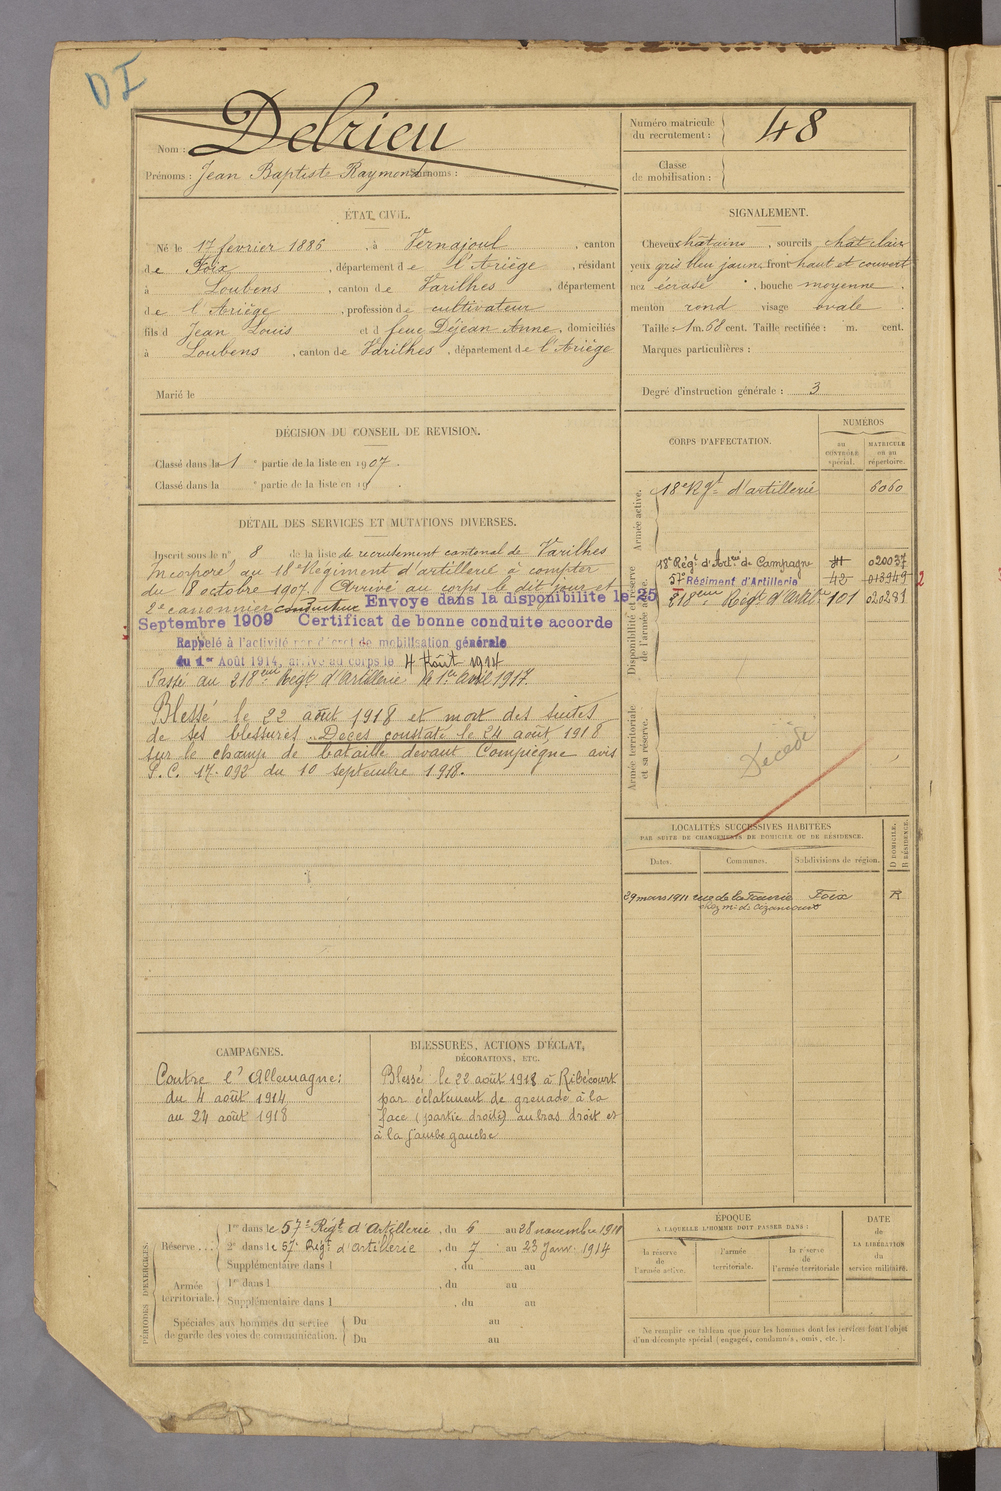 DI
Nom : Delrieu
Prénoms : Jean Baptiste Raymond Surnoms :
Numéro matricule du recrutement : 48
Classe de mobilisation :
ÉTAT CIVIL.
Né le 17 février 1886, à Vernajoul, canton
de Foix, département de l'Ariège, résidant
à Loubens, canton de Varilhes, département
de l'Ariège, profession de cultivateur
fils d Jean Louis et d feue Déjean Anne, domiciliés
à Loubens, canton de Varilhes, département de l'Ariège
Marié le
SIGNALEMENT.
Cheveux chatains, sourcils chat clair
yeux gris bleu jaun, front haut et couvert
nez écrasé, bouche moyenne.
menton rond visage ovale.
Taille : 1 m. 68 cent. Taille rectifiée : m. cent.
Marques particulières :
Degré d'instruction générale : 3
DÉCISION DU CONSEIL DE REVISION.
Classé dans la 1 e partie de la liste en 1907.
Classé dans la e partie de la liste en 19 .
DÉTAIL DES SERVICES ET MUTATIONS DIVERSES.
Inscrit sous le n° 8 de la liste de recrutement cantonal de Varilhes
Incorporé au 18e Régiment d'artillerie à compter
du 8 octobre 1907. Arrivé au corps le dit jour et
2e canonnier conducteur Envoyé dans la disponibilité le 25
Septembre 1909 Certificat de bonne conduite accordé
Rappelé à l'activité par décret de mobilisation générale
du 1er Août 1914, arrivé au corps le 4 Août 1914
Passé au 218eme Régt d'Artillerie le 1er avril 1917.
Blessé le 22 août 1918 et mort des suites
de ses blessures. Décès constaté le 24 août 1918
sur le champ de bataille devant Compiègne avis
S.C. 17.092 du 10 septembre 1918.
CORPS D'AFFECTATION.
NUMÉROS
au CONTRÔLE spécial.
MATRICULE ou au répertoire.
Armée active.
18e Rgt d'artillerie 6060
Disponibilité et réserve de l'armée active.
18e Régt d'Artrie de Campagne 41 020037
57e Régiment d'Artillerie 42 013949 2
218eme Régt d'Artrie 101 020231
Armée territoriale et sa réserve.
Décédé
LOCALITÉS SUCCESSIVES HABITÉES
PAR SUITE DE CHANGEMENTS DE DOMICILE OU DE RÉSIDENCE.
Dates. Communes. Subdivisions de région. D DOMICILE. R RÉSIDENCE.
29 mars 1911 rue de la Foix R
chez Mr de
CAMPAGNES.
Contre l'Allemagne :
du 4 août 1914
au 24 août 1918
BLESSURES, ACTIONS D'ÉCLAT,
DÉCORATIONS, ETC.
Blessé le 22 août 1918 à Ribécourt
par éclatement de grenade à la
face (partie droite) au bras droit et
à la jambe gauche
PÉRIODES D'EXERCICES.
Réserve...
1re dans le 57e Régt d'Artillerie, du 6 au 28 novembre 1911
2e dans le 57e Régt d'artillerie, du 7 au 23 Janv. 1914
Supplémentaire dans l , du au
Armée territoriale.
1re dans l , du au
Supplémentaire dans l , du au
Spéciales aux hommes du service de garde des voies de communication.
Du au
Du au
ÉPOQUE
A LAQUELLE L'HOMME DOIT PASSER DANS :
la réserve de l'armée active.
l'armée territoriale.
la réserve de l'armée territoriale
DATE de LA LIBÉRATION du service militaire.
Ne remplir ce tableau que pour les hommes dont les services font l'objet
d'un décompte spécial (engagés, condamnés, omis, etc.).